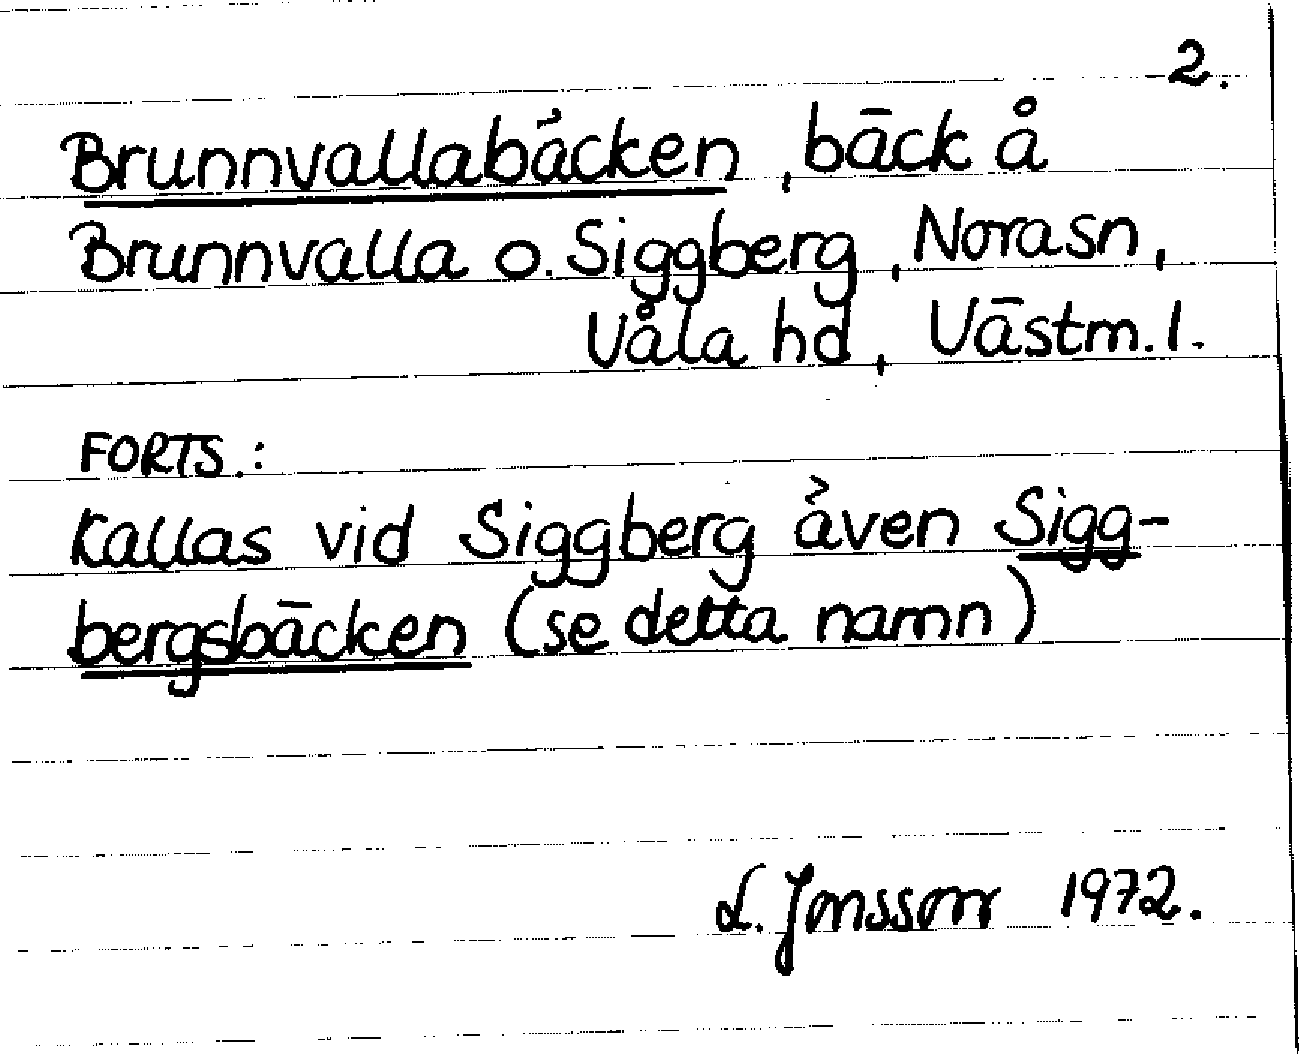 2.
Brunnvallabäcken, bäck å
Brunnvalla o. Siggberg, Nora sn,
Våla hd, Västm. l.
FORTS.:
Kallas vid Siggberg även Sigg-
bergsbäcken (se detta namn)
L. Jonsson 1972.